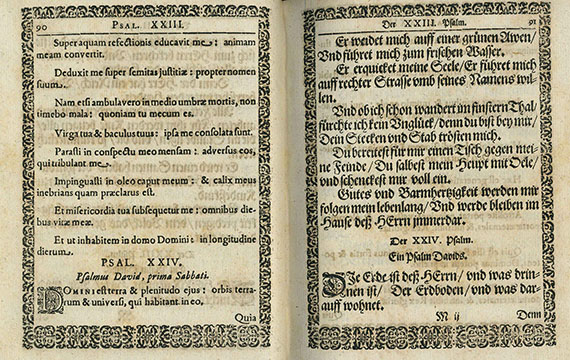 90
PSAL. XXIII.
Super aquam refectionis educavit me: animam
meam convertit.
Deduxit me super semitas justitiæ: propter nomen
suum.
Nam etsi ambulavero in medio umbræ mortis, non
timebo mala: quoniam tu mecum es.
Virga tua & baculus tuus: ipsa me consolata sunt.
Parasti in conspectu meo mensam: adversus eos,
qui tribulant me.
Impinguasti in oleo caput meum: & calix meus
inebrians quam præclarus est.
Et misericordia tua subsequetur me: omnibus die-
bus vitæ meæ.
Et ut inhabitem in domo Domini: in longitudine
dierum.
PSAL. XXIV.
Psalmus David, prima Sabbati.
DOMINI est terra & plenitudo ejus: orbis terra-
rum & universi, qui habitant in eo.
Quia
Der XXIII. Psalm.
91
Er weidet mich auff einer grünen Awen/
Vnd führet mich zum frischen Wasser.
Er erquicket meine Seele/ Er führet mich
auff rechter Strasse vmb seines Namens wil-
len.
Vnd ob ich schon wandert im finstern Thal/
fürchte ich kein Vnglück/ denn du bist bey mir/
Dein Stecken und Stab trösten mich.
Du bereitest für mir einen Tisch gegen mei-
ne Feinde/ Du salbest mein Heupt mit Oele/
vnd schenckest mir voll ein.
Gutes vnd Barmhertzigkeit werden mir
folgen mein lebenlang/ Vnd werde bleiben im
Hause deß HErrn jmmerdar.
Der XXIV. Psalm.
Ein Psalm Davids.
DIe Erde ist deß HErrn/ vnd was drin-
nen ist/ Der Erdboden/ vnd was dar-
auff wohnet.
M ij
Denn